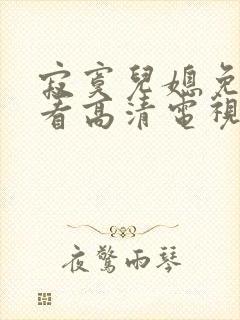 寂寞兒媳免
看高清電視
夜驚雨琴